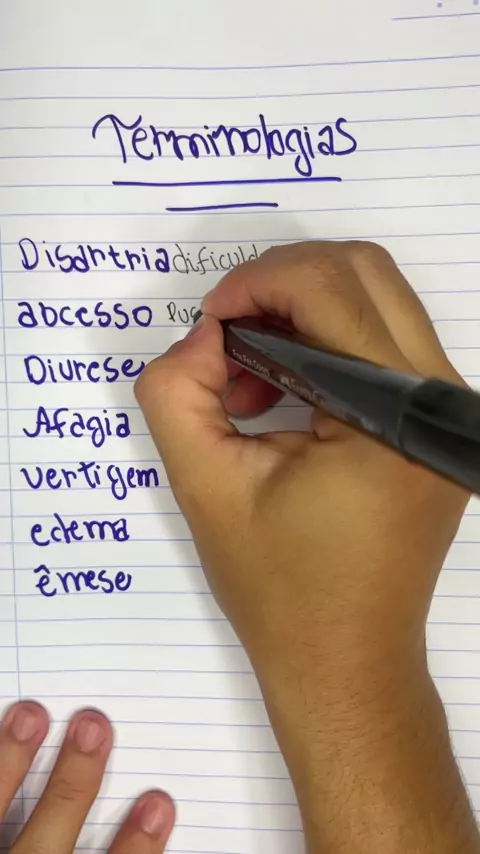 Terminologias
Disartria dificuld
abcesso Pus
Diurese
Afagia
vertigem
edema
êmese